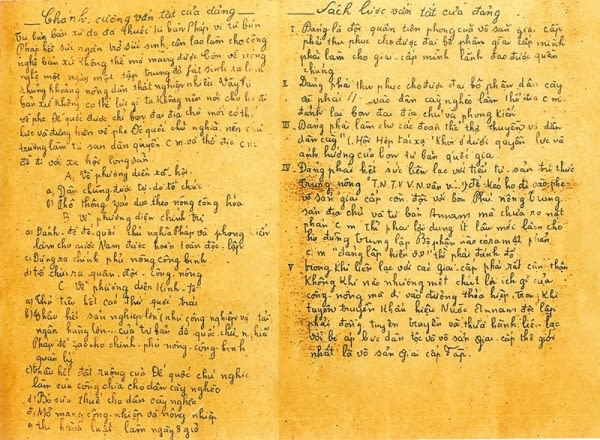 Chánh cương vắn tắt của đảng
Tư bản bản xứ đã thuộc tư bản Pháp, vì tư bản
Pháp hết sức ngăn trở sức sinh sản làm cho công
nghệ bản xứ không thể mở mang được. Còn về nông
nghệ một ngày một tập trung đã phát sinh ra lắm
khủng khoảng, nông dân thất nghiệp nhiều. Vậy tư
bản xứ không có thế lực gì ta không nên nói cho họ đi
về phe đế quốc được, chỉ bọn đại địa chủ mới có thế
lực và đứng hẳn về phe đế quốc chủ nghĩa nên chủ
trương làm tư sản dân quyền c.m. và thổ địa c.m.
để đi tới xã hội cộng sản.
A. Về phương diện xã hội:
a, Dân chúng được tự do tổ chức
b, Phổ thông giáo dục theo nông công hóa
B. Về phương diện chính trị
a) Đánh đổ đế quốc chủ nghĩa Pháp và phong kiến
làm cho nước Nam được hoàn toàn độc lập
c) Dựng ra chính phủ nông công binh
d) tổ chức ra quân đội công nông
C. Về phương diện kinh tế
a) Thủ tiêu hết các thứ quốc trái
b) thâu hết sản nghiệp lớn (như công nghiệp vận tải
ngân hàng lớn...) của tư bản đế quốc chủ nghĩa
Pháp để giao cho chính phủ nông công binh
quản lý
c) thâu hết đất ruộng của đế quốc chủ nghĩa
làm của công chia cho dân cày nghèo
d) Bỏ sưu thuế cho dân cày nghèo
đ) Mở mang công nghiệp và nông nghiệp
e) thi hành luật làm ngày 8 giờ
Sách lược vắn tắt của đảng
I. Đảng là đội quân tiên phong của vô sản giai cấp
phải thu phục cho được đại bộ phận giai cấp mình
phải làm cho giai cấp mình lãnh đạo được quần
chúng.
II. Đảng phải thu phục cho được đại bộ phận dân cày
và phải dựa vào dân cày nghèo làm thổ địa c.m.
đánh đổ bọn đại địa chủ và phong kiến
III. Đảng phải làm cho các đoàn thể thợ thuyền và dân
dân cày (Hội Hợp tác xã) khỏi ở dưới quyền lực và
ảnh hưởng của bọn tư bản quốc gia.
IV. Đảng phải hết sức liên lạc với tiểu tư sản trí thức
trung nông, T.N, T.V.V.N.v.v... để kéo họ đi vào phe
vô sản giai cấp còn đối với bọn Phú nông trung
sản địa chủ và tư bản Annam mà chưa rõ mặt
phản c.m thì phải lợi dụng ít lâu mới làm cho
họ đứng trung lập. Bộ phận nào đã ra mặt phản
c.m "đảng lập hiến v.v" thì phải đánh đổ
V. Trong khi liên lạc với các giai cấp phải rất cẩn thận
không khi nào nhượng một chút lợi ích gì của
công nông mà đi vào đường thỏa hiệp, trong khi
tuyên truyền khẩu hiệu nước Annam độc lập
phải đồng tuyên truyền và thực hành liên lạc
với bị áp bức dân tộc và vô sản giai cấp thế giới
nhất là vô sản giai cấp Pháp.